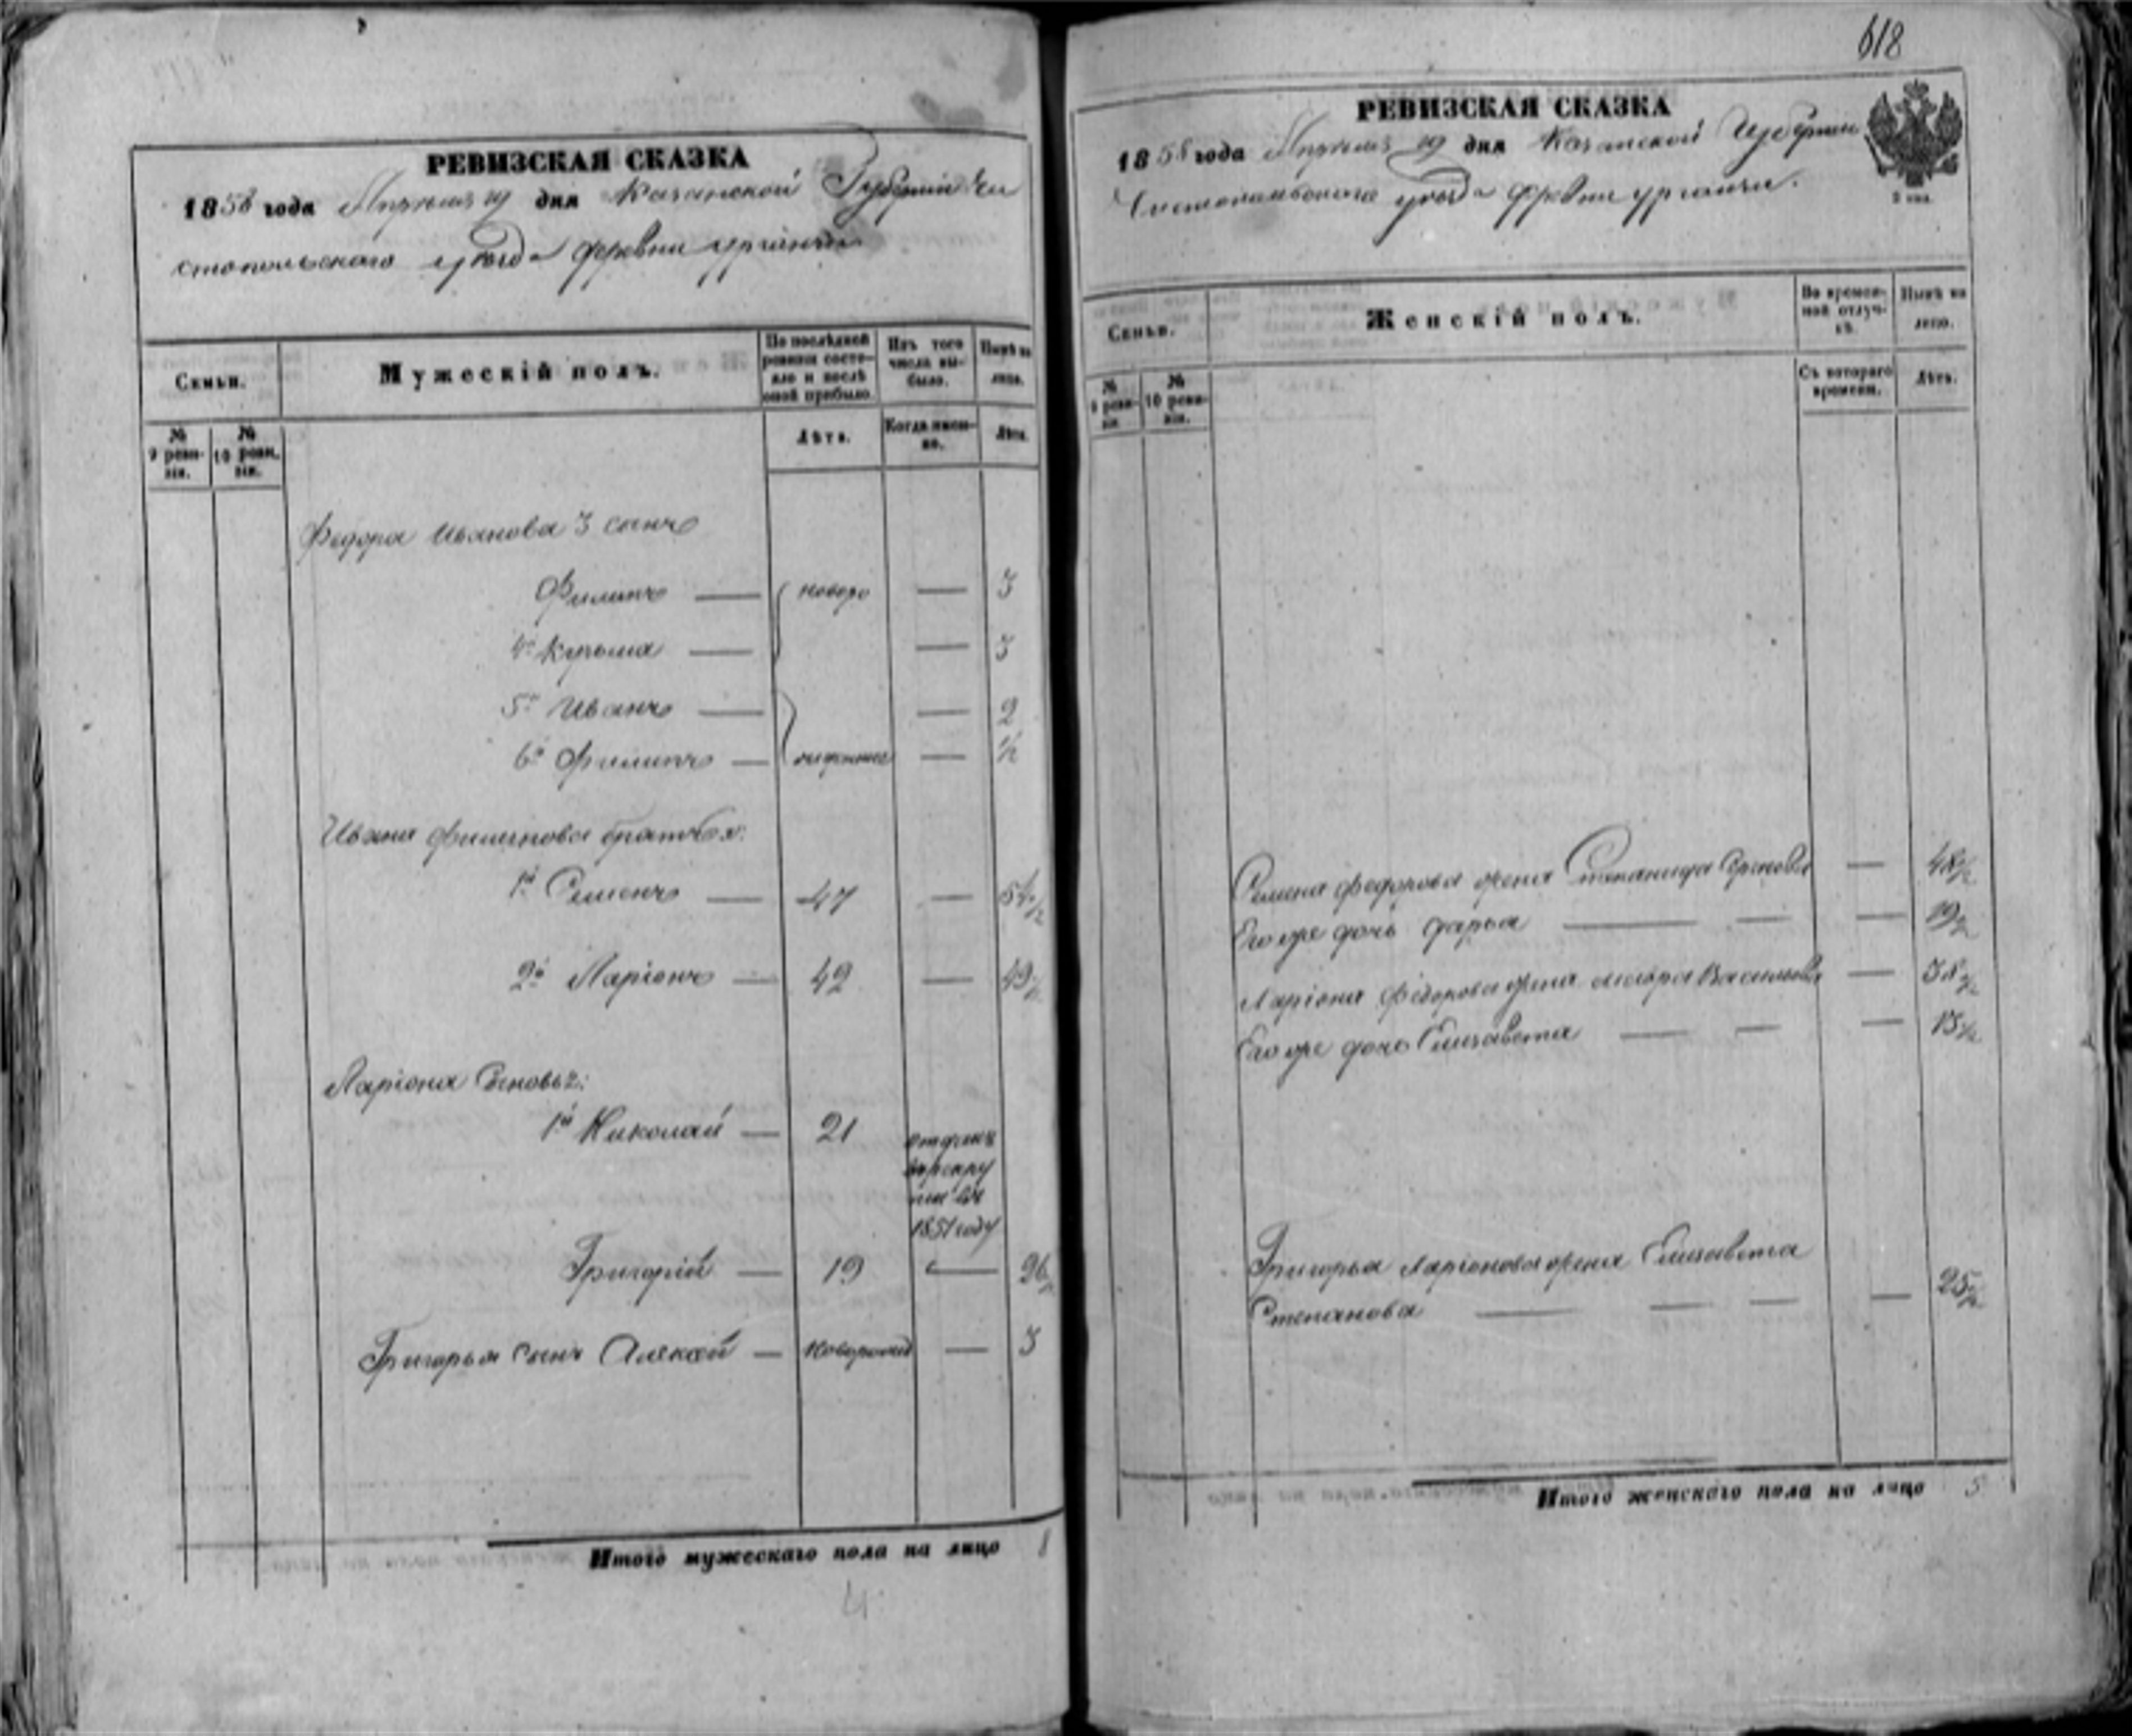 618
РЕВИЗСКАЯ СКАЗКА
1858 года Апреля 19 дня Казанской Губернии Чи
стопольскаго уезда деревни
Семьи.
Мужескій полъ.
По последней ревизіи состояло и после оной прибыло.
Изъ того числа выбыло.
Ныне на лицо.
№ 9 ревизіи.
№ 10 ревизіи.
Лѣта.
Когда именно.
Лѣта.
Федора Иванова 3 сынъ
Филипъ — новоро — 3
4й Кузьма — — 3
5й Иванъ — — 2
6й Филипъ — жденные — ½
Ивана братья:
1й Семенъ — 47 — 54½
2й Ларіонъ — 42 — 49½
Ларіона Сыновья:
1й Николай — 21 отданъ
въ рекру
ты въ
1851 году
Григорій — 19 — 26½
Григорья Сынъ Алексей — новорожд — 3
Итого мужескаго пола на лицо 8
4
РЕВИЗСКАЯ СКАЗКА
1858 года Апреля 19 дня Казанской Губернии
Чистопольскаго уезда деревни
2 коп.
Семьи.
Женскій полъ.
Во временной отлучкѣ.
Нынѣ на лицо.
№ 9 ревизіи.
№ 10 ревизіи.
Съ котораго времени.
Лѣта.
Семена Федорова жена Степанида — 48½
Его же дочь Дарья — — — 19½
Ларіона Федорова жена Васильева — 38½
Его же дочь Елизавета — — — 15½
Григорья Ларіонова жена Елизавета
Степанова — — — — 25½
Итого женскаго пола на лицо 5